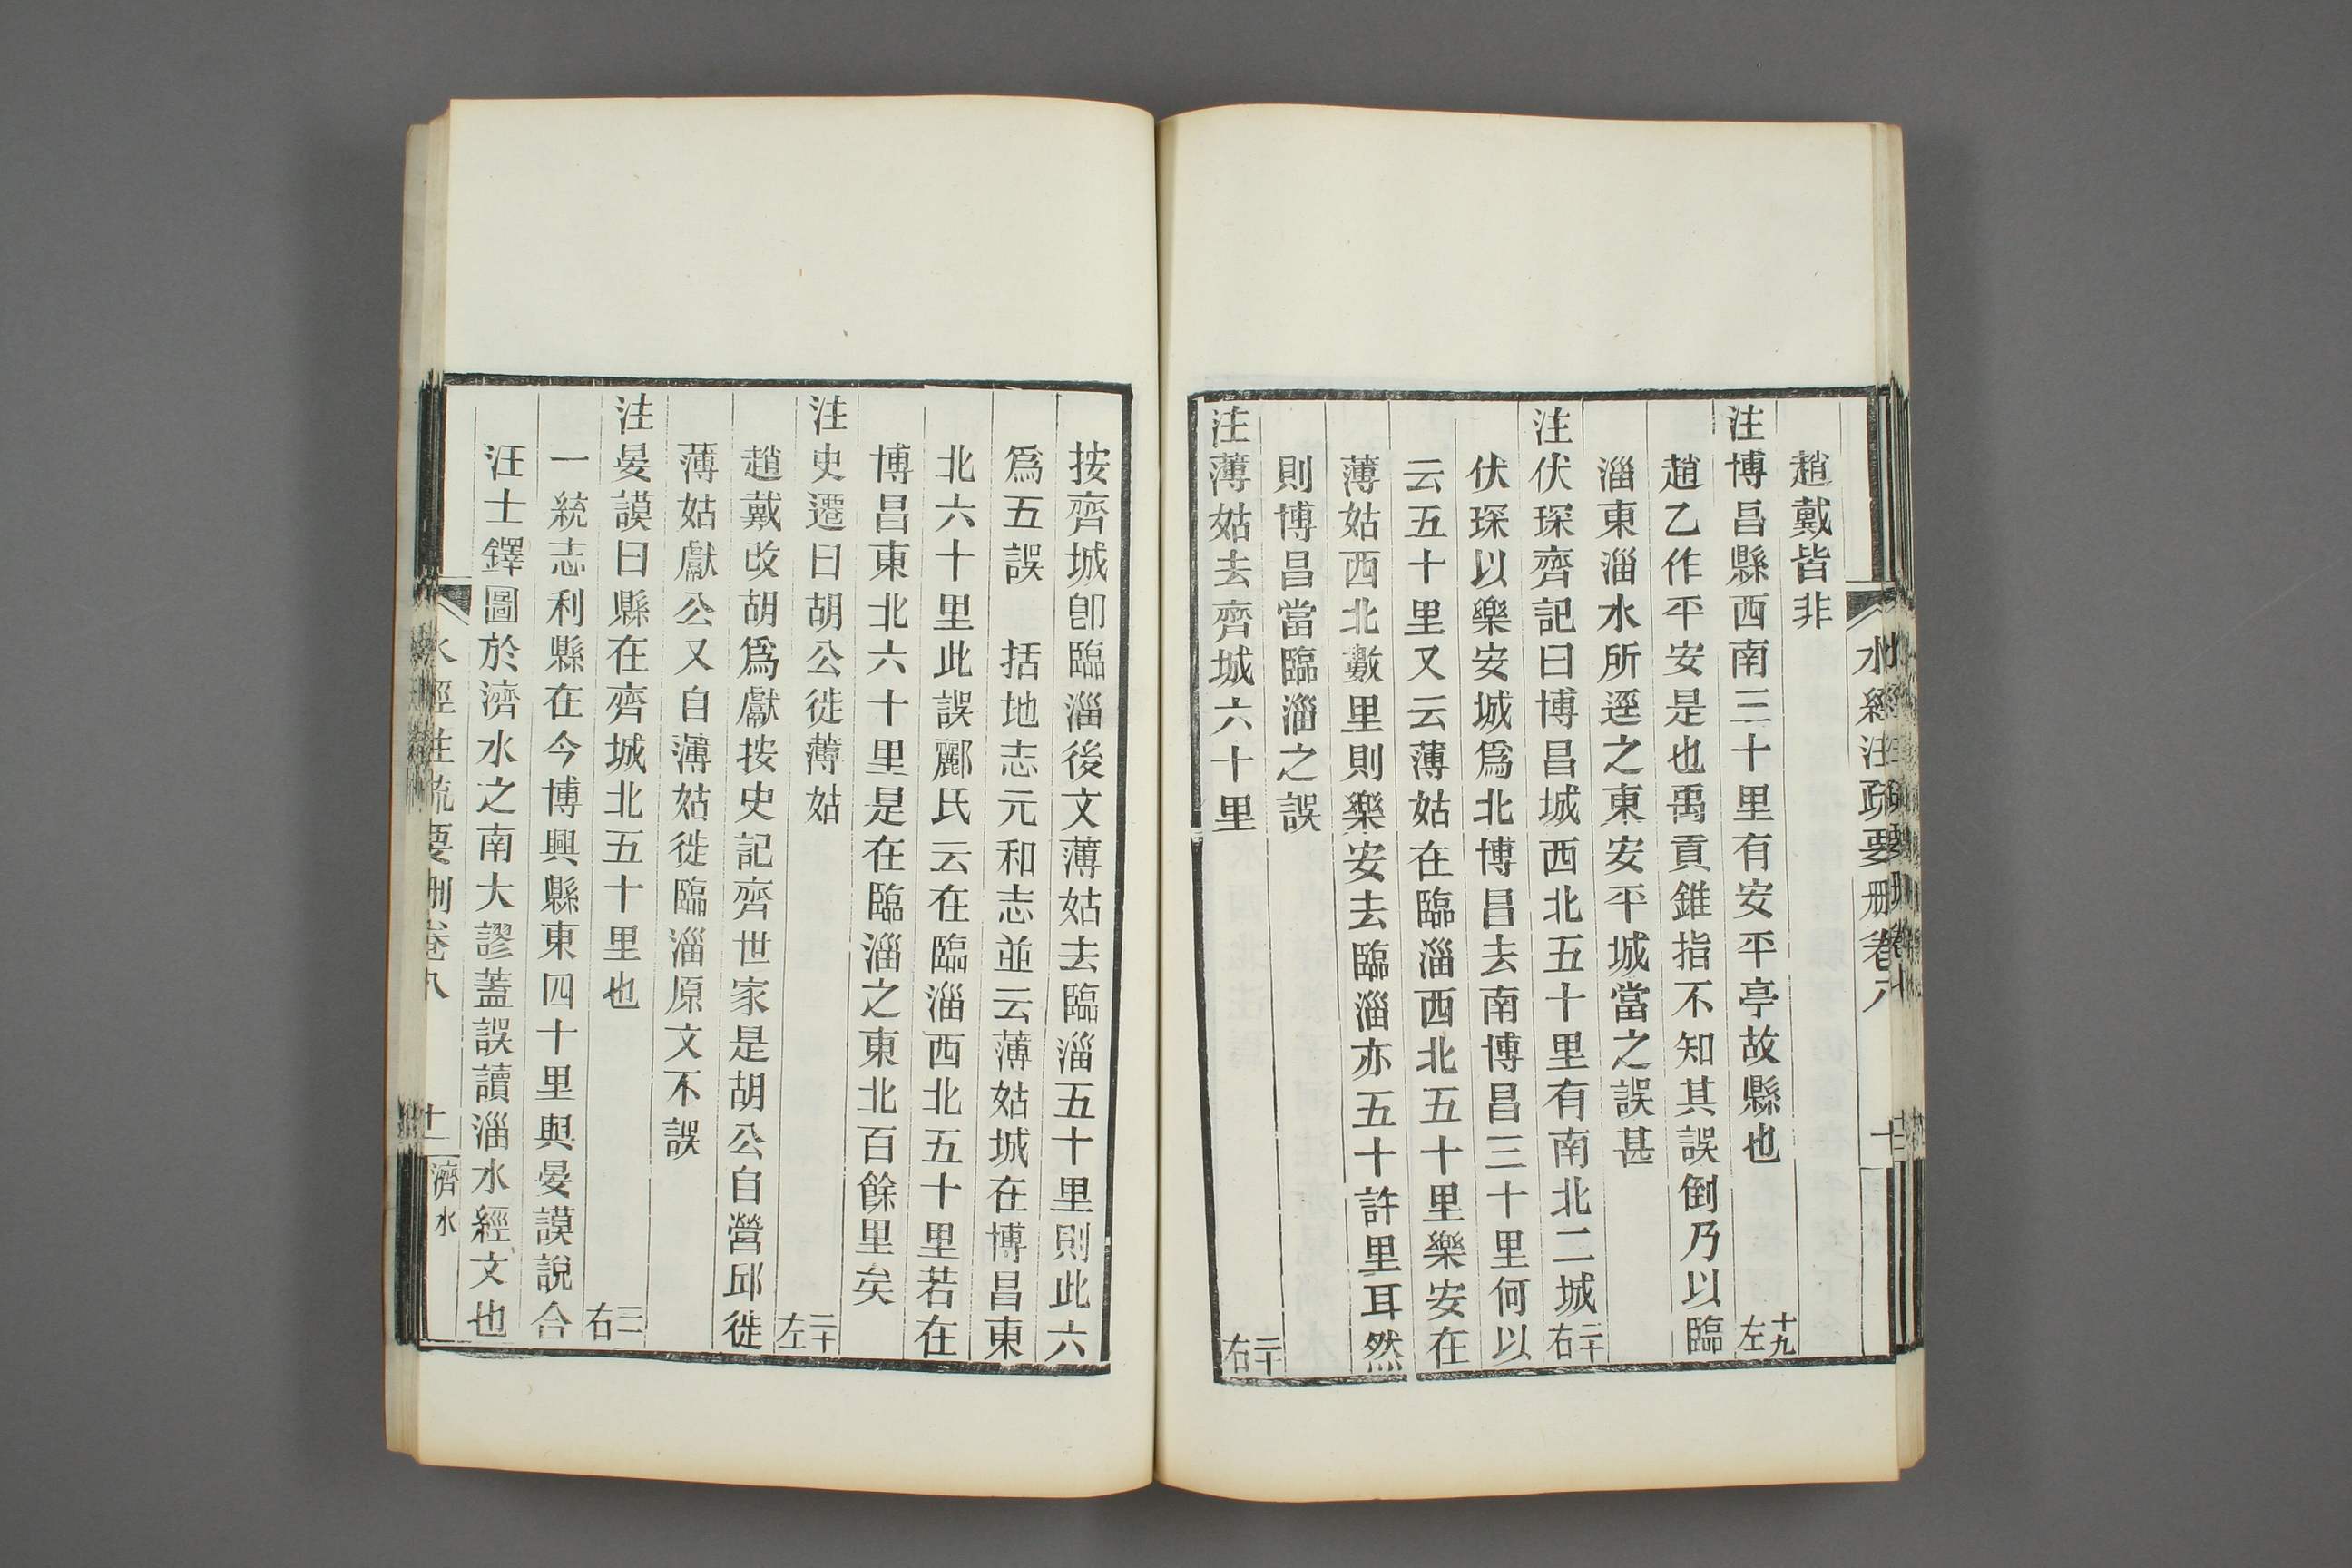 水經注疏要刪卷八
十
趙戴皆非
注博昌縣西南三十里有安平亭故縣也 十九左
趙乙作平安是也禹貢錐指不知其誤倒乃以臨
淄東淄水所逕之東安平城當之誤甚
注伏琛齊記曰博昌城西北五十里有南北二城 二十右
伏琛以樂安城爲北博昌去南博昌三十里何以
云五十里又云薄姑在臨淄西北五十里樂安在
薄姑西北數里則樂安去臨淄亦五十許里耳然
則博昌當臨淄之誤
注薄姑去齊城六十里 二十右
按齊城卽臨淄後文薄姑去臨淄五十里則此六
爲五誤 括地志元和志並云薄姑城在博昌東
北六十里此誤酈氏云在臨淄西北五十里若在
博昌東北六十里是在臨淄之東北百餘里矣
注史遷曰胡公徙薄姑 二十左
趙戴改胡爲獻按史記齊世家是胡公自營邱徙
薄姑獻公又自薄姑徙臨淄原文不誤
注晏謨曰縣在齊城北五十里也 三一右
一統志利縣在今博興縣東四十里與晏謨說合
汪士鐸圖於濟水之南大謬蓋誤讀淄水經文也
水經注疏要刪卷八
十一
濟水